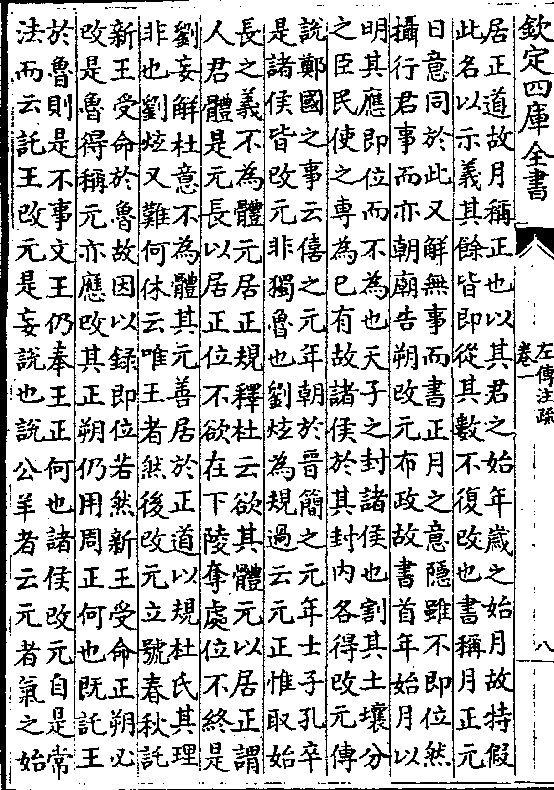 欽定四庫全書
左傳注疏
卷一
八
居正道故月稱正也以其君之始年歲之始月故特假
此名以示義其餘皆即從其數不復改也書稱月正元
日意同於此又解無事而書正月之意隱雖不即位然
攝行君事而亦朝廟告朔改元布政故書首年始月以
明其應即位而不為也天子之封諸侯也割其土壤分
之臣民使之專為已有故諸侯於其封内各得改元傳
說鄭國之事云僖之元年朝於晉簡之元年士子孔卒
是諸侯皆改元非獨魯也劉炫為規過云元正惟取始
長之義不為體元居正規釋杜云欲其體元以居正謂
人君體是元長以居正位不欲在下陵奪處位不終是
劉妄解杜意不為體其元善居於正道以規杜氏其理
非也劉炫又難何休云唯王者然後改元立號春秋託
新王受命於魯故因以錄即位若然新王受命正朔必
改是魯得稱元亦應改其正朔仍用周正何也既託王
於魯則是不事文王仍奉王正何也諸侯改元自是常
法而云託王改元是妄說也說公羊者云元者氣之始